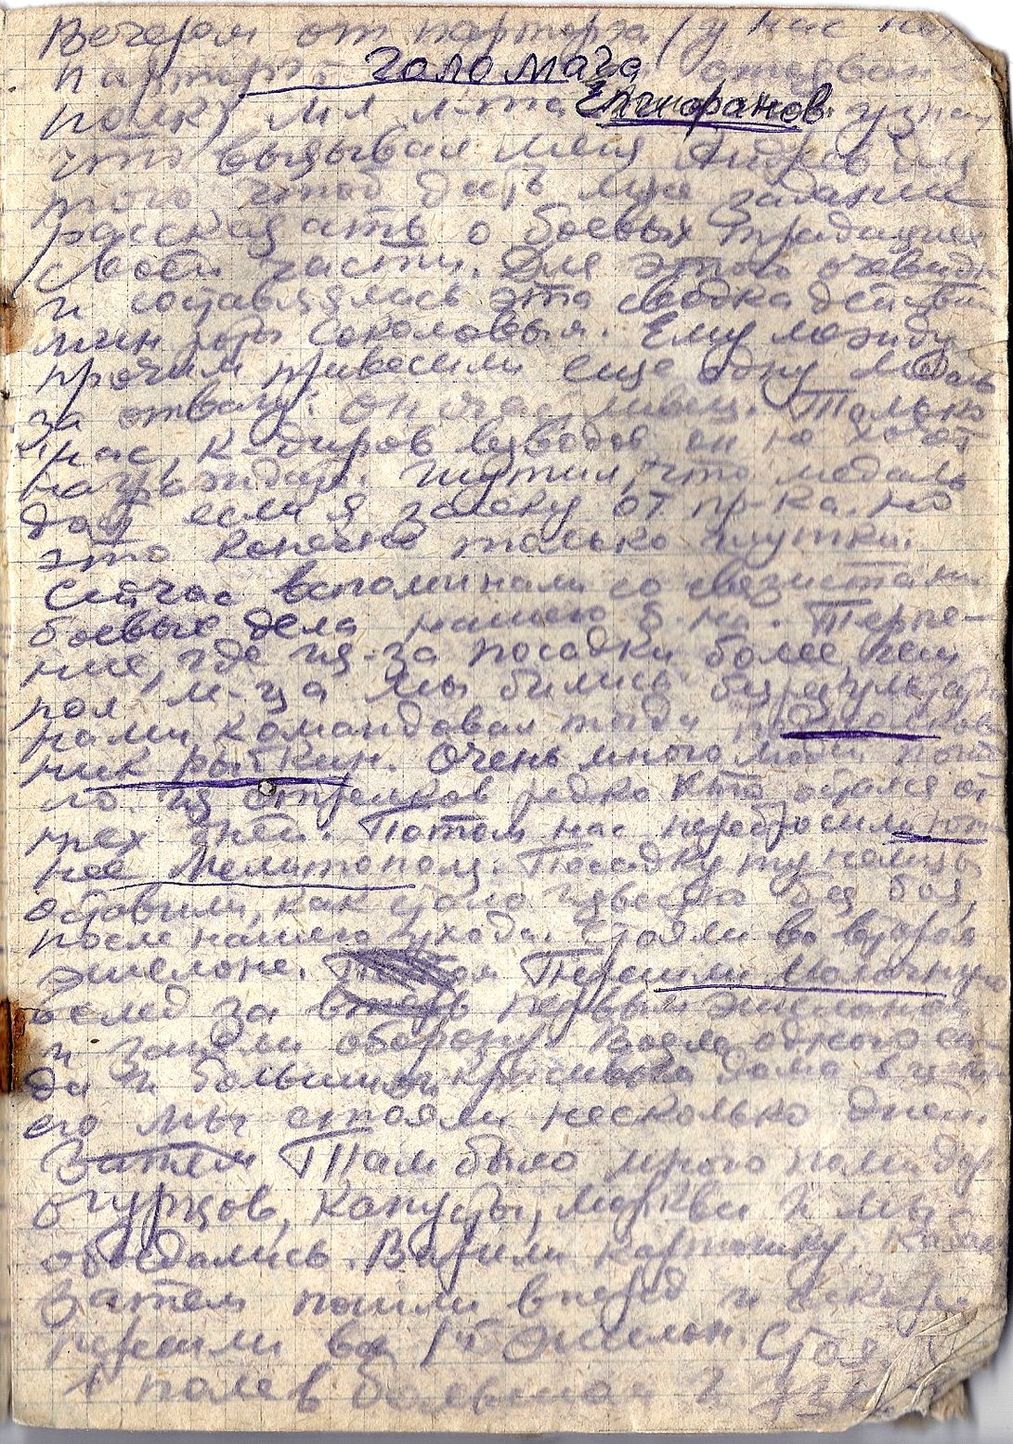 Вечером от парторга (у нас нов
парторг. Голомага отозван
полк) мл. л-та Епифанов узнал
что вызывал меня Андреев для
того чтоб дать мне задание
рассказать о боевых традициях
своей части. Для этого очевидн
и составлялась эта сводка
мин роты Соколовым. Ему между
прочим привесили еще одну медаль
за отвагу. Он счастливец. Только
нас, к-диров взводов он не хочет
награждать. Шутил, что медаль
даст если я от пр-ка. Но
это конечно только шутки.
Сейчас вспоминали со связистами
боевые дела нашего б-на. Терпе-
ние, где из-за посадки более, чем
пол м-ца мы бились безрезульт
нами командовал тогда
ник Рыбкин. Очень много людей погиб
ло из стрелков редко кто остался от
трех дней. Потом нас перебросили
нее Мелитополя. Посадку ту немцы
оставили, как стало известно без боя,
после нашего ухода. Стояли во втором
эшелоне. Перешли Молочную
вслед за первым эшелоном
и заняли оборону. Возле одного са-
да и большого красивого дома в
его мы стояли несколько дней.
Там было много помидор
огурцов, капусты, моркви и мы
объедались. Варили картошку,
Затем пошли вперед и вскоре
перешли в 1й эшелон. Стоя
в поле в большой